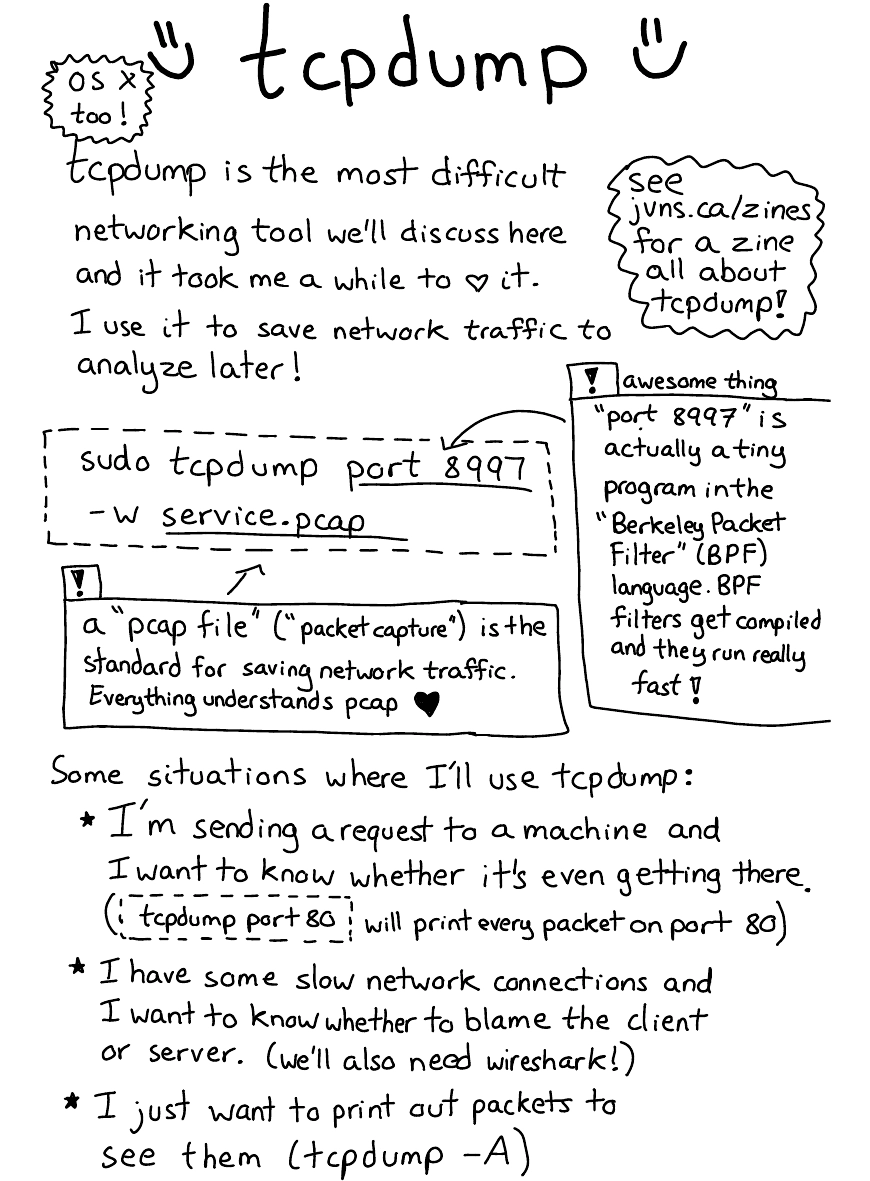 tcpdump
OS X
too!
tcpdump is the most difficult
networking tool we'll discuss here
and it took me a while to ♡ it.
I use it to save network traffic to
analyze later!
see
jvns.ca/zines
for a zine
all about
tcpdump!
sudo tcpdump port 8997
-w service.pcap
! awesome thing
"port 8997" is
actually a tiny
program in the
"Berkeley Packet
Filter" (BPF)
language. BPF
filters get compiled
and they run really
fast!
!
a "pcap file" ("packet capture") is the
standard for saving network traffic.
Everything understands pcap ♥
Some situations where I'll use tcpdump:
* I'm sending a request to a machine and
I want to know whether it's even getting there.
(tcpdump port 80 will print every packet on port 80)
* I have some slow network connections and
I want to know whether to blame the client
or server. (we'll also need wireshark!)
* I just want to print out packets to
see them (tcpdump -A)